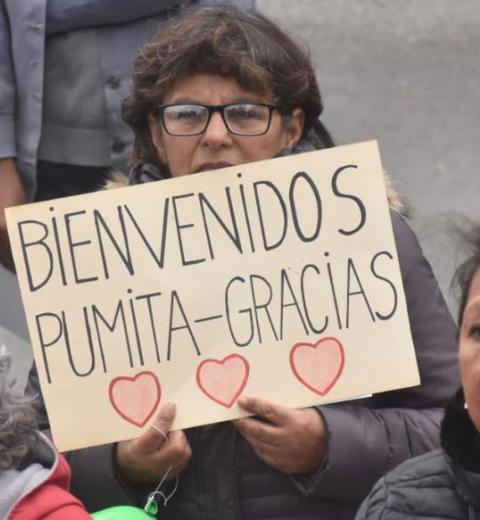 BIENVENIDOS
PUMITA-GRACIAS